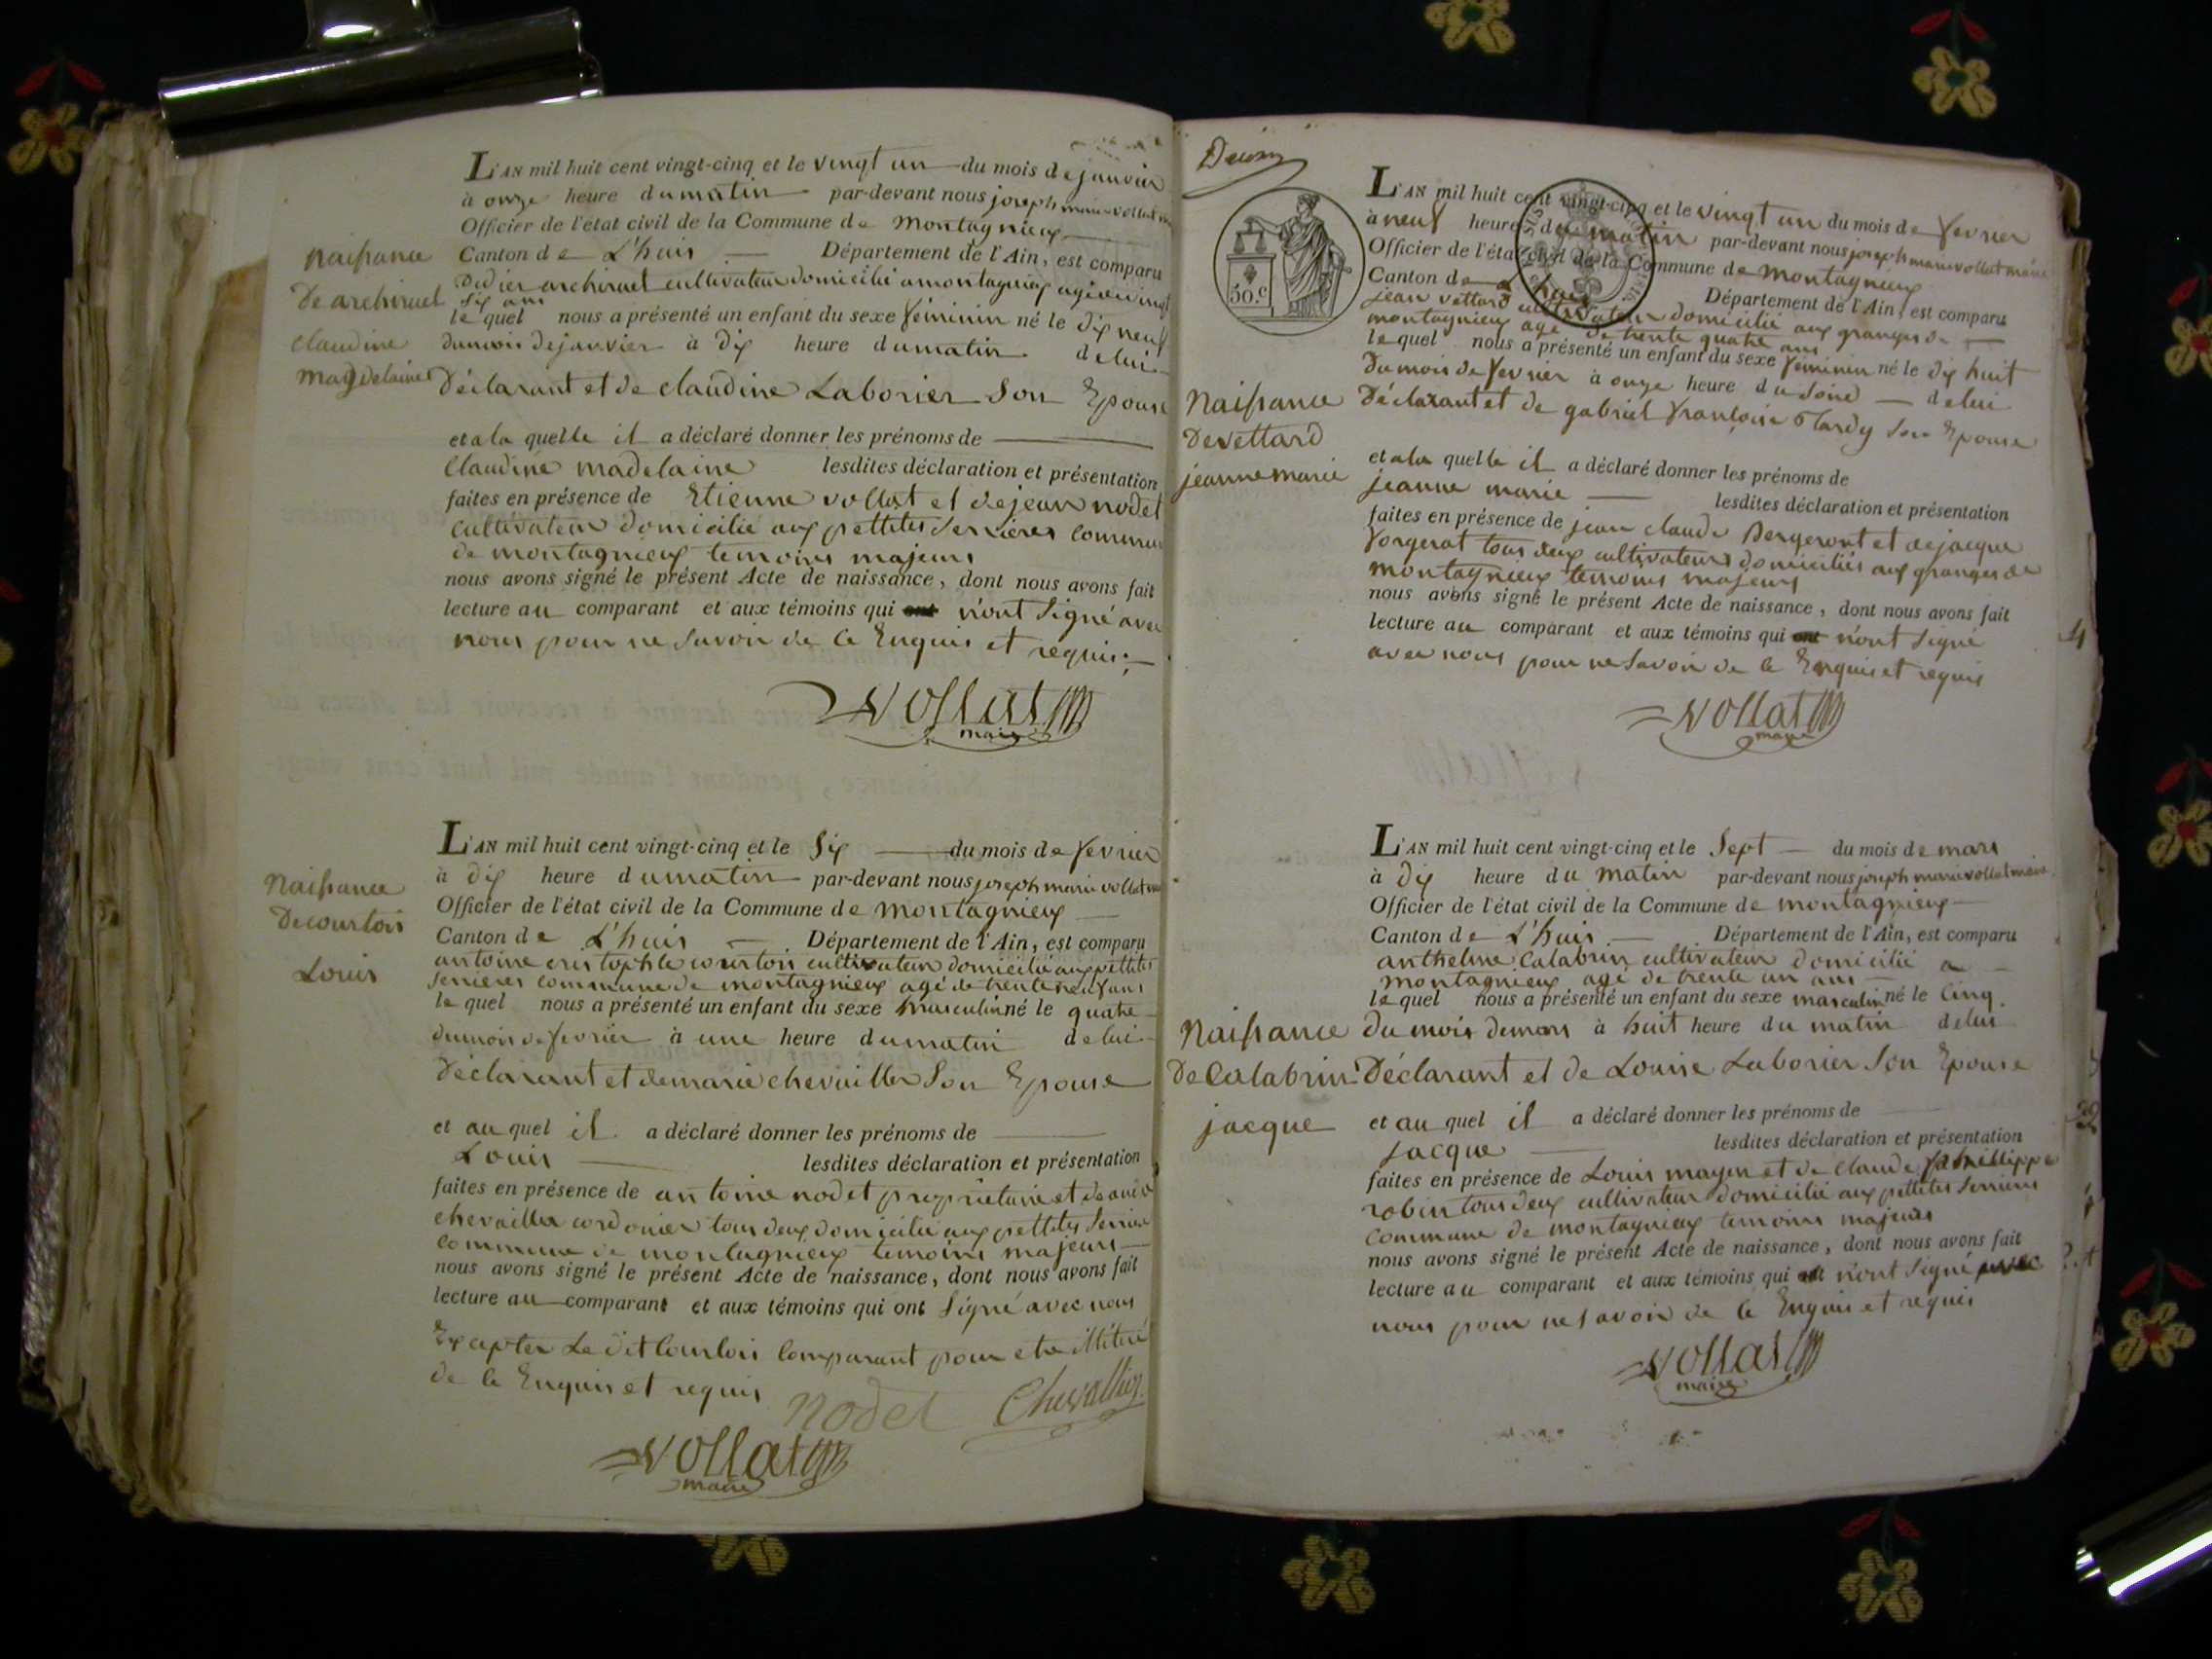 L'AN mil huit cent vingt-cinq et le vingt un du mois de janvier
à onze heure du matin par-devant nous joseph marie vollat
Officier de l'état civil de la Commune de Montagnieux
Canton de L'huis Département de l'Ain, est comparu
Didier archiruel cultivateur domicilié a montagnieux agé de vingt
six ans
le quel nous a présenté un enfant du sexe féminin né le dix neuf
du mois de janvier à dix heure du matin de lui
Déclarant et de claudine Laborier Son Epouse
et a la quelle il a déclaré donner les prénoms de
Claudine madelaine lesdites déclaration et présentation
faites en présence de Etienne vollat et de jean nodet
cultivateur domicilié aux pettites Serrieres commune
de montagnieux temoins majeurs
nous avons signé le présent Acte de naissance, dont nous avons fait
lecture au comparant et aux témoins qui ont n'ont Signé avec
nous pour ne Savoir de ce Enquis et requis
vollat
maire
Naissance
De archiruel
claudine
magdelaine
L'AN mil huit cent vingt-cinq et le Six du mois de fevrier
à dix heure du matin par-devant nous joseph marie vollat
Officier de l'état civil de la Commune de montagnieux
Canton de L'huis Département de l'Ain, est comparu
antoine cristophle courtois cultivateur domicilié aux pettites
Serrieres commune de montagnieux agé de trente neuf ans
le quel nous a présenté un enfant du sexe masculin né le quatre
du mois de fevrier à une heure du matin de lui
Déclarant et de marie chevailler Son Epouse
et au quel il a déclaré donner les prénoms de
Louis lesdites déclaration et présentation
faites en présence de antoine nodet proprietaire et de
chevailler cordonier tous deux domicilié aux pettites Serriere
commune de montagnieux temoins majeurs
nous avons signé le présent Acte de naissance, dont nous avons fait
lecture au comparant et aux témoins qui ont Signé avec nous
Exapter Le dit Courtois Comparant pour etre illiteré
de ce Enquis et requis
nodet Chevallier
vollat
maire
Naissance
De courtois
Louis
50.c
L'AN mil huit cent vingt-cinq et le vingt un du mois de fevrier
à neuf heure du matin par-devant nous joseph marie vollat maire
Officier de l'état civil de la Commune de montagnieux
Canton de L'huis Département de l'Ain, est comparu
jean vettard cultivateur domicilié aux granges de
montagnieux agé de trente quatre ans
le quel nous a présenté un enfant du sexe féminin né le dix huit
Du mois de fevrier à onze heure du Soire de lui
Déclarant et de gabriel françoise Tardy Son Epouse
et a la quelle il a déclaré donner les prénoms de
jeanne marie lesdites déclaration et présentation
faites en présence de jean claude Bergeront et de jacque
forgerat tous deux cultivateurs domiciliés aux granges de
montagnieux temoins majeurs
nous avons signé le présent Acte de naissance, dont nous avons fait
lecture au comparant et aux témoins qui ont n'ont Signé
avec nous pour ne Savoir de ce Enquis et requis
vollat
maire
Naissance
De vettard
jeanne marie
L'AN mil huit cent vingt-cinq et le Sept du mois de mars
à dix heure du matin par-devant nous joseph marie vollat maire
Officier de l'état civil de la Commune de montagnieux
Canton de L'huis Département de l'Ain, est comparu
anthelme Calabrin cultivateur domicilié a
montagnieux agé de trente un ans
le quel nous a présenté un enfant du sexe masculin né le Cinq
du mois de mars à huit heure du matin de lui
Déclarant et de Louise Laborier Son Epouse
et au quel il a déclaré donner les prénoms de
jacque lesdites déclaration et présentation
faites en présence de Louis mayen et de claude philippe
robin tous deux cultivateur domicilié aux pettites Serrieres
commune de montagnieux temoins majeurs
nous avons signé le présent Acte de naissance, dont nous avons fait
lecture au comparant et aux témoins qui ont n'ont Signé avec
nous pour ne Savoir de ce Enquis et requis
vollat
maire
Naissance
De Calabrin
jacque